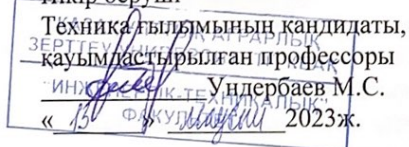 Пікір беруші
Техника ғылымының кандидаты,
қауымдастырылған профессоры
Үндербаев М.С.
«13» маусым 2023ж.
АГРАРЛЫҚ
ЗЕРТТЕУ
ИНЖЕНЕРЛІК-ТЕХНИКАЛЫҚ
ФАКУЛЬТЕТІ